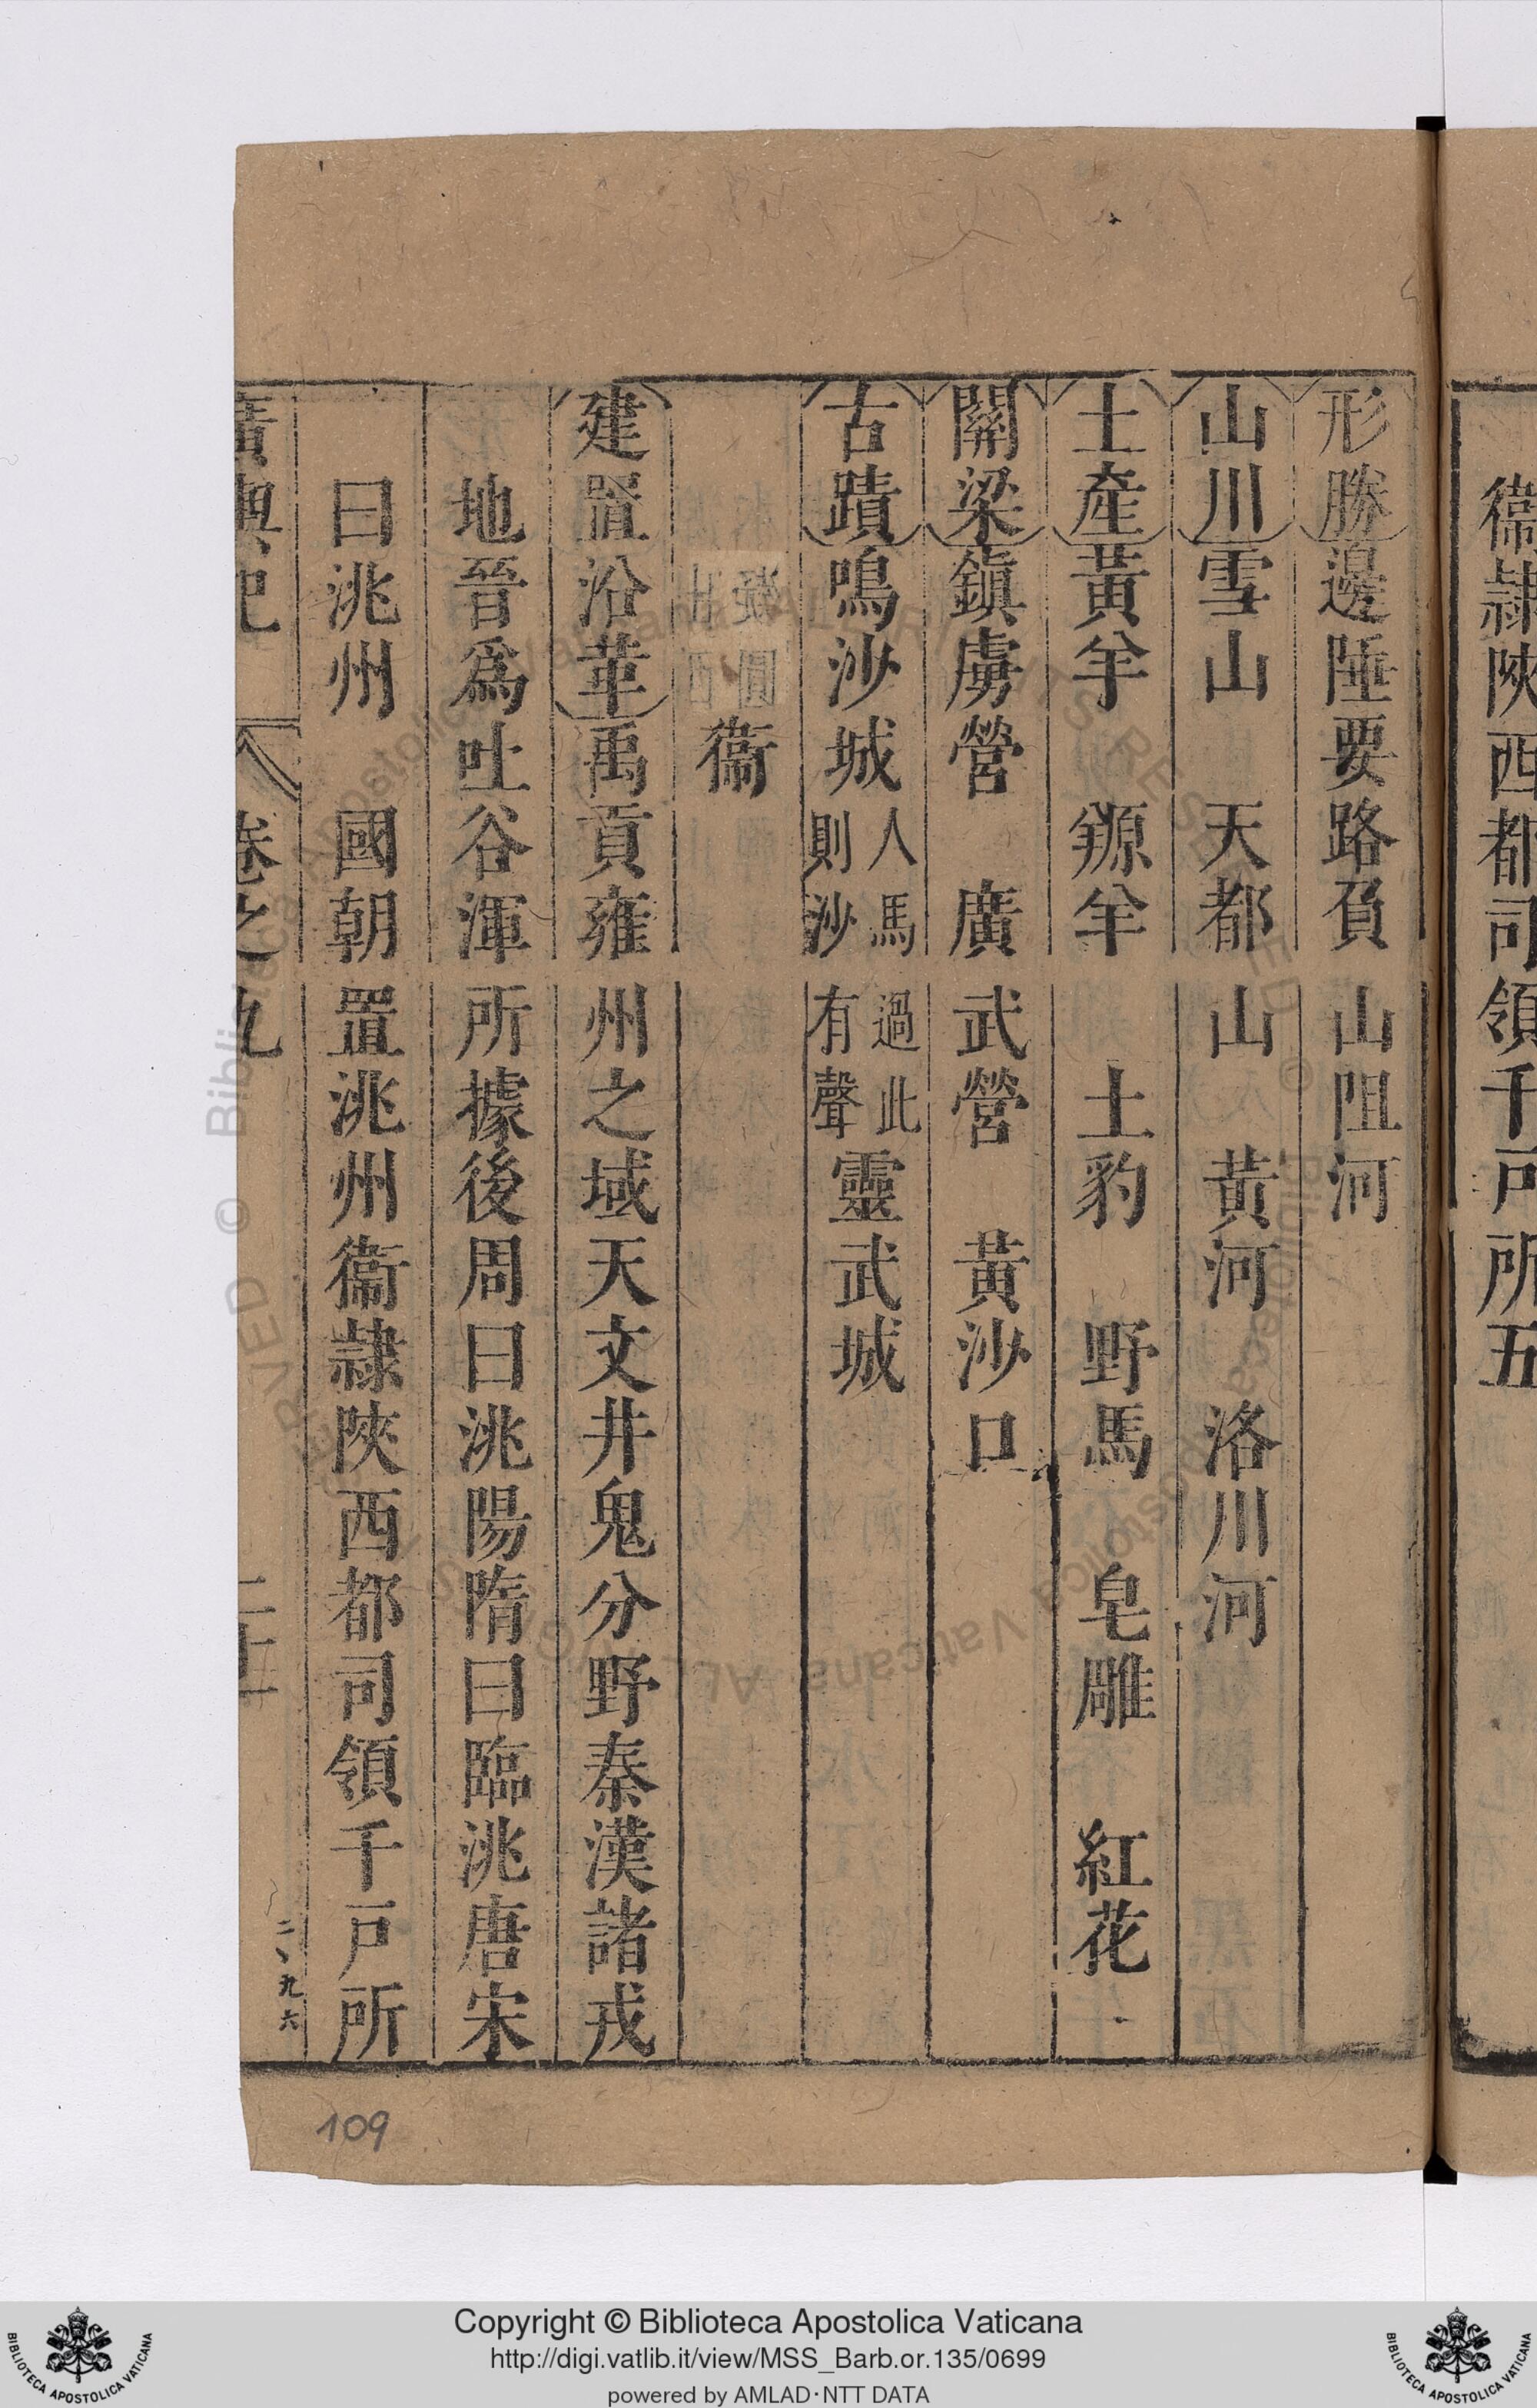 衞隷陜西都司領千戸所五
形勝邊陲要路負山阻河
山川雪山 天都山 黃河 洛川河
土產黃羊 羱羊 土豹 野馬 皂雕 紅花
關梁鎮虜營 廣武營 黃沙口
古蹟鳴沙城人馬過此則沙有聲靈武城
衞
建置沿革禹貢雍州之域天文井鬼分野秦漢諸戎
地晉爲吐谷渾所據後周曰洮陽隋曰臨洮唐宋
曰洮州 國朝置洮州衞隷陜西都司領千戸所
廣輿記 卷之九
二、九六
109
Copyright © Biblioteca Apostolica Vaticana
http://digi.vatlib.it/view/MSS_Barb.or.135/0699
powered by AMLAD·NTT DATA
BIBLIOTECA APOSTOLICA VATICANA
BIBLIOTECA APOSTOLICA VATICANA